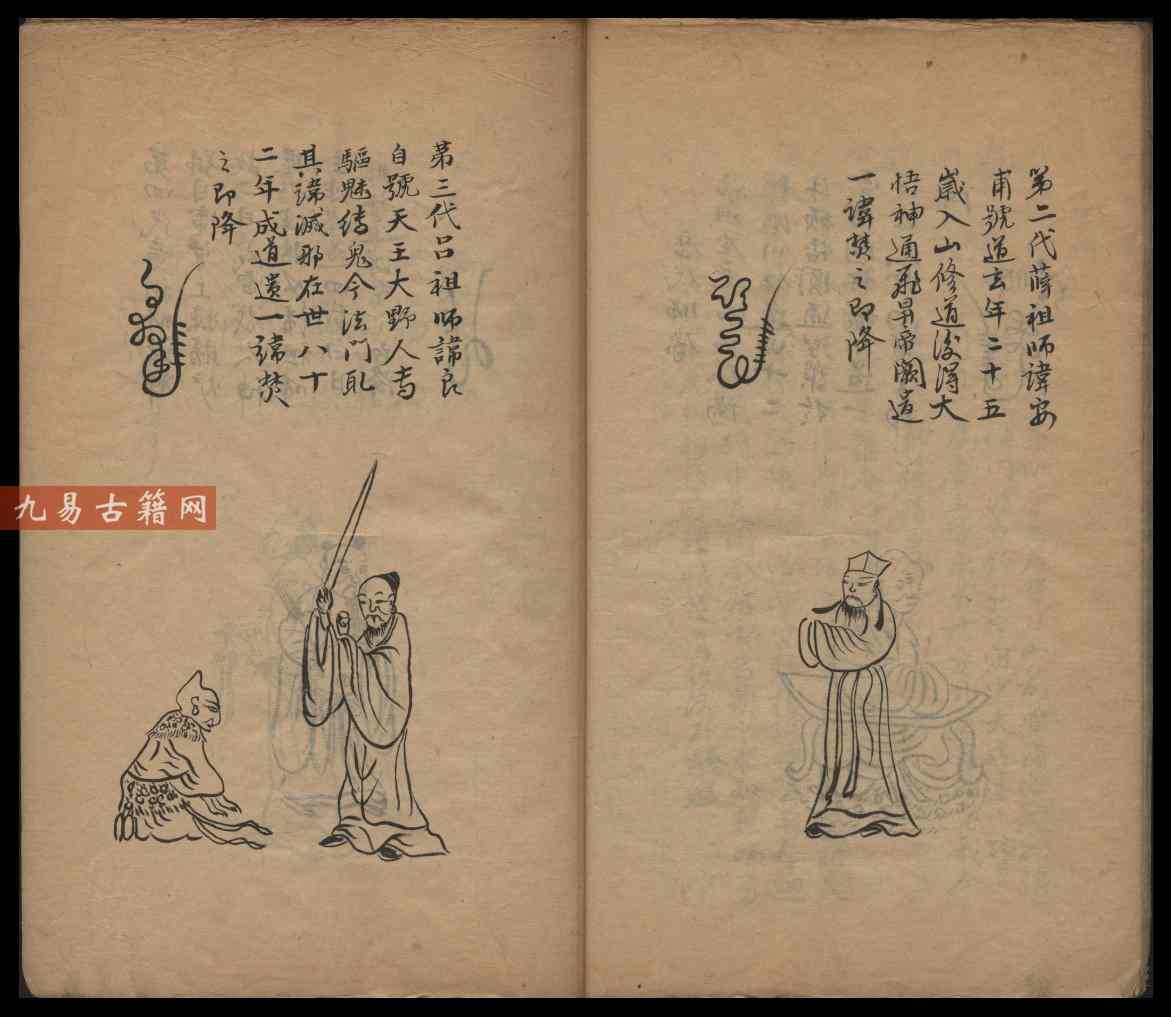 第二代薛祖师諱安
甫號道玄年二十五
歲入山修道後得大
悟神通飛昇帝闕遺
一諱焚之即降
第三代吕祖师諱良
自號天王大野人专
驅魅縛鬼今法門
其諱滅邪在世八十
二年成道遺一諱焚
之即降
九易古籍网